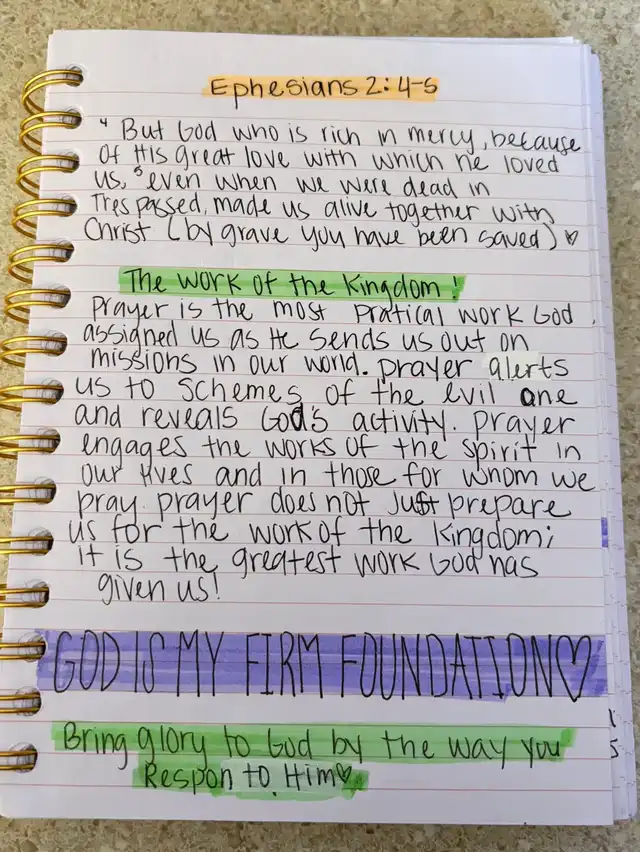 Ephesians 2:4-5
4 But God who is rich in mercy, because
of His great love with which he loved
us, 5 even when we were dead in
Trespassed, made us alive together with
Christ (by grave you have been saved) ♡
The work of the Kingdom!
Prayer is the most pratical work God
assigned us as He sends us out on
missions in our world. prayer alerts
us to schemes of the evil one
and reveals God's activity. prayer
engages the works of the spirit in
our lives and in those for whom we
pray. prayer does not just prepare
us for the work of the kingdom;
it is the greatest work God has
given us!
GOD IS MY FIRM FOUNDATION♡
Bring glory to God by the way you
Respon to Him♡